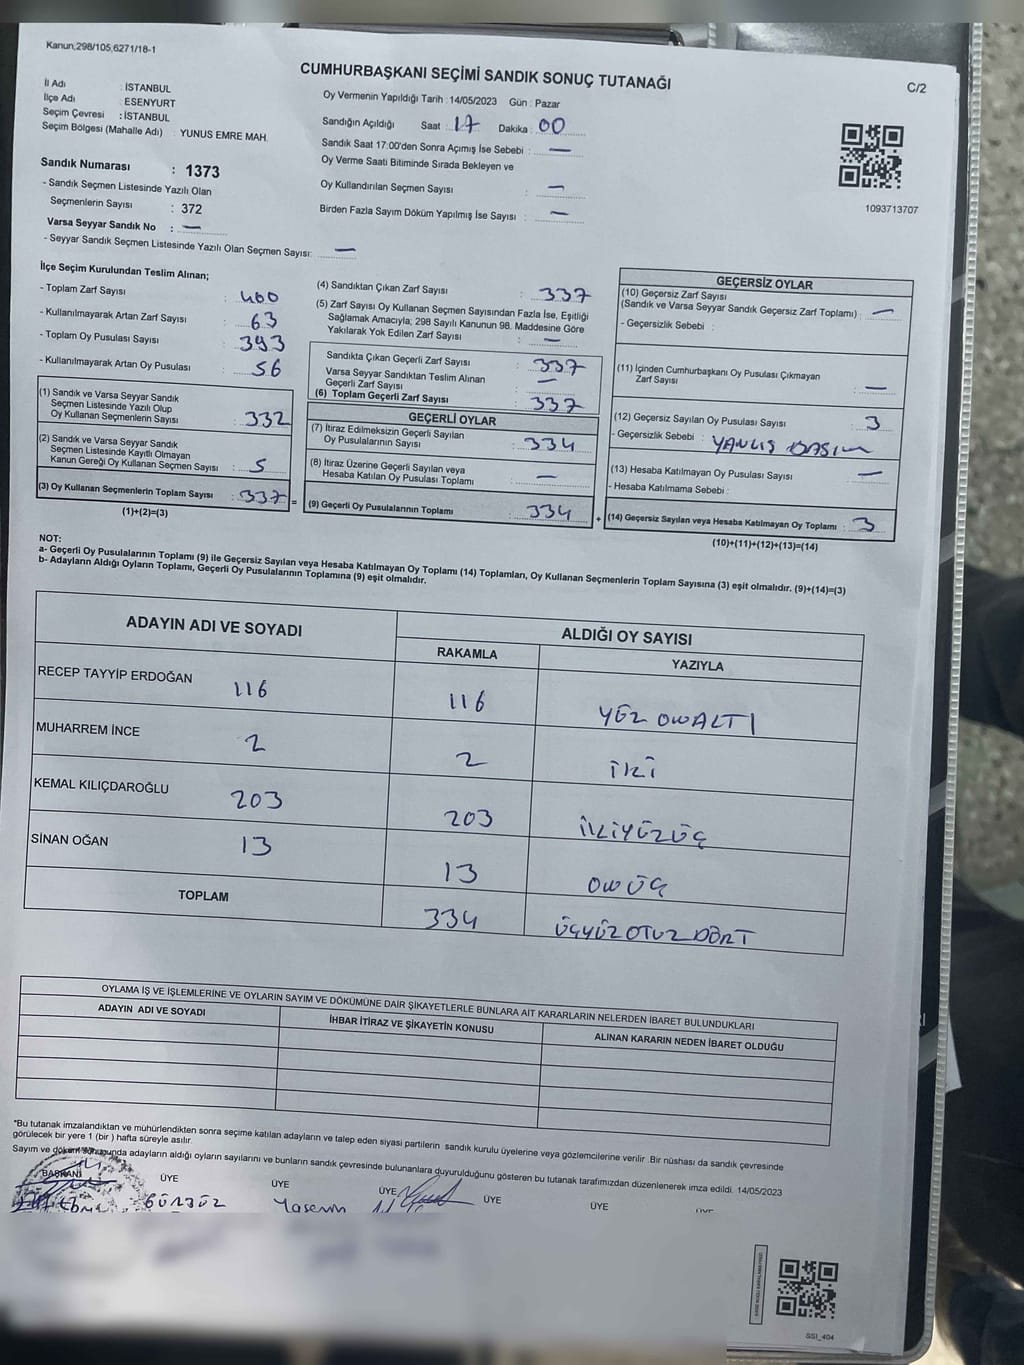 Kanun;298/105,6271/18-1
CUMHURBAŞKANI SEÇİMİ SANDIK SONUÇ TUTANAĞI
C/2
İl Adı : İSTANBUL
İlçe Adı : ESENYURT
Seçim Çevresi : İSTANBUL
Seçim Bölgesi (Mahalle Adı) : YUNUS EMRE MAH.
Oy Vermenin Yapıldığı Tarih : 14/05/2023 Gün : Pazar
Sandığın Açıldığı Saat : 17 Dakika : 00
Sandık Saat 17:00'den Sonra Açımış İse Sebebi : —
Oy Verme Saati Bitiminde Sırada Bekleyen ve
Oy Kullandırılan Seçmen Sayısı : —
Birden Fazla Sayım Döküm Yapılmış İse Sayısı : —
1093713707
Sandık Numarası : 1373
- Sandık Seçmen Listesinde Yazılı Olan
Seçmenlerin Sayısı : 372
Varsa Seyyar Sandık No : —
- Seyyar Sandık Seçmen Listesinde Yazılı Olan Seçmen Sayısı: —
İlçe Seçim Kurulundan Teslim Alınan;
- Toplam Zarf Sayısı : 400
- Kullanılmayarak Artan Zarf Sayısı : 63
- Toplam Oy Pusulası Sayısı : 393
- Kullanılmayarak Artan Oy Pusulası : 56
(1) Sandık ve Varsa Seyyar Sandık
Seçmen Listesinde Yazılı Olup
Oy Kullanan Seçmenlerin Sayısı : 332
(2) Sandık ve Varsa Seyyar Sandık
Seçmen Listesinde Kayıtlı Olmayan
Kanun Gereği Oy Kullanan Seçmen Sayısı : 5
(3) Oy Kullanan Seçmenlerin Toplam Sayısı : 337 =
(1)+(2)=(3)
(4) Sandıktan Çıkan Zarf Sayısı : 337
(5) Zarf Sayısı Oy Kullanan Seçmen Sayısından Fazla İse, Eşitliği
Sağlamak Amacıyla; 298 Sayılı Kanunun 98. Maddesine Göre
Yakılarak Yok Edilen Zarf Sayısı : —
Sandıkta Çıkan Geçerli Zarf Sayısı : 337
Varsa Seyyar Sandıktan Teslim Alınan
Geçerli Zarf Sayısı : —
(6) Toplam Geçerli Zarf Sayısı : 337
GEÇERLİ OYLAR
(7) İtiraz Edilmeksizin Geçerli Sayılan
Oy Pusulalarının Sayısı : 334
(8) İtiraz Üzerine Geçerli Sayılan veya
Hesaba Katılan Oy Pusulası Toplamı : —
(9) Geçerli Oy Pusulalarının Toplamı : 334 +
GEÇERSİZ OYLAR
(10) Geçersiz Zarf Sayısı
(Sandık ve Varsa Seyyar Sandık Geçersiz Zarf Toplamı) : —
- Geçersizlik Sebebi :
(11) İçinden Cumhurbaşkanı Oy Pusulası Çıkmayan
Zarf Sayısı : —
(12) Geçersiz Sayılan Oy Pusulası Sayısı : 3
- Geçersizlik Sebebi : YANLIŞ BASIM
(13) Hesaba Katılmayan Oy Pusulası Sayısı : —
- Hesaba Katılmama Sebebi :
(14) Geçersiz Sayılan veya Hesaba Katılmayan Oy Toplamı : 3
(10)+(11)+(12)+(13)=(14)
NOT:
a- Geçerli Oy Pusulalarının Toplamı (9) ile Geçersiz Sayılan veya Hesaba Katılmayan Oy Toplamı (14) Toplamları, Oy Kullanan Seçmenlerin Toplam Sayısına (3) eşit olmalıdır. (9)+(14)=(3)
b- Adayların Aldığı Oyların Toplamı, Geçerli Oy Pusulalarının Toplamına (9) eşit olmalıdır.
ADAYIN ADI VE SOYADI ALDIĞI OY SAYISI
RAKAMLA YAZIYLA
RECEP TAYYİP ERDOĞAN 116 116 YÜZ ONALTI
MUHARREM İNCE 2 2 İKİ
KEMAL KILIÇDAROĞLU 203 203 İKİYÜZÜÇ
SİNAN OĞAN 13 13 ONÜÇ
TOPLAM 334 ÜÇYÜZOTUZDÖRT
OYLAMA İŞ VE İŞLEMLERİNE VE OYLARIN SAYIM VE DÖKÜMÜNE DAİR ŞİKAYETLERLE BUNLARA AİT KARARLARIN NELERDEN İBARET BULUNDUKLARI
ADAYIN ADI VE SOYADI İHBAR İTİRAZ VE ŞİKAYETİN KONUSU ALINAN KARARIN NEDEN İBARET OLDUĞU
*Bu tutanak imzalandıktan ve mühürlendikten sonra seçime katılan adayların ve talep eden siyasi partilerin sandık kurulu üyelerine veya gözlemcilerine verilir. Bir nüshası da sandık çevresinde
görülecek bir yere 1 (bir ) hafta süreyle asılır.
Sayım ve döküm sonucunda adayların aldığı oyların sayılarını ve bunların sandık çevresinde bulunanlara duyurulduğunu gösteren bu tutanak tarafımızdan düzenlenerek imza edildi. 14/05/2023
BAŞKAN ÜYE ÜYE ÜYE ÜYE ÜYE ÜYE
GÜRBÜZ Yasemin
SSI_404